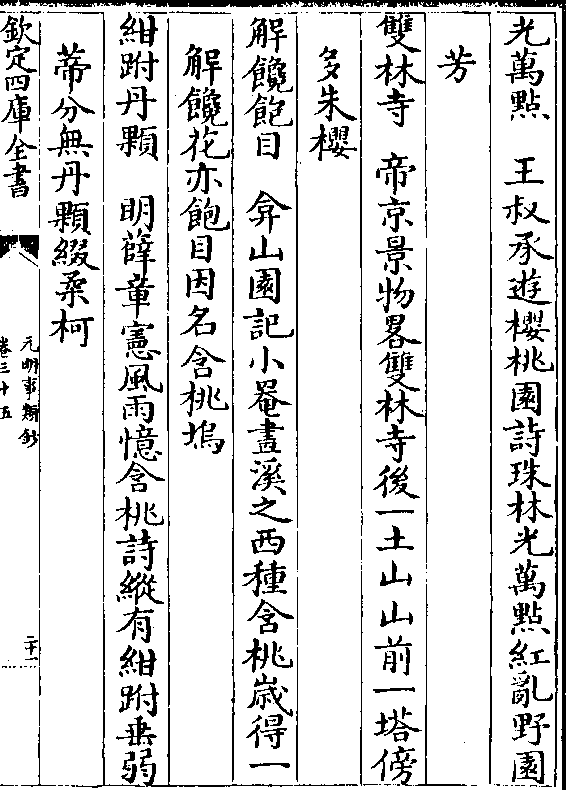 光萬點　王叔承遊櫻桃園詩珠林光萬點紅亂野園
芳
雙林寺　帝京景物畧雙林寺後一土山山前一塔傍
多朱櫻
解饞飽目　弇山園記小菴畫溪之西種含桃嵗得一
解饞花亦飽目因名含桃塢
紺跗丹顆　明薛章憲風雨憶含桃詩縱有紺跗垂弱
蒂分無丹顆綴柔柯
欽定四庫全書
元明事類鈔
卷三十五
二十一